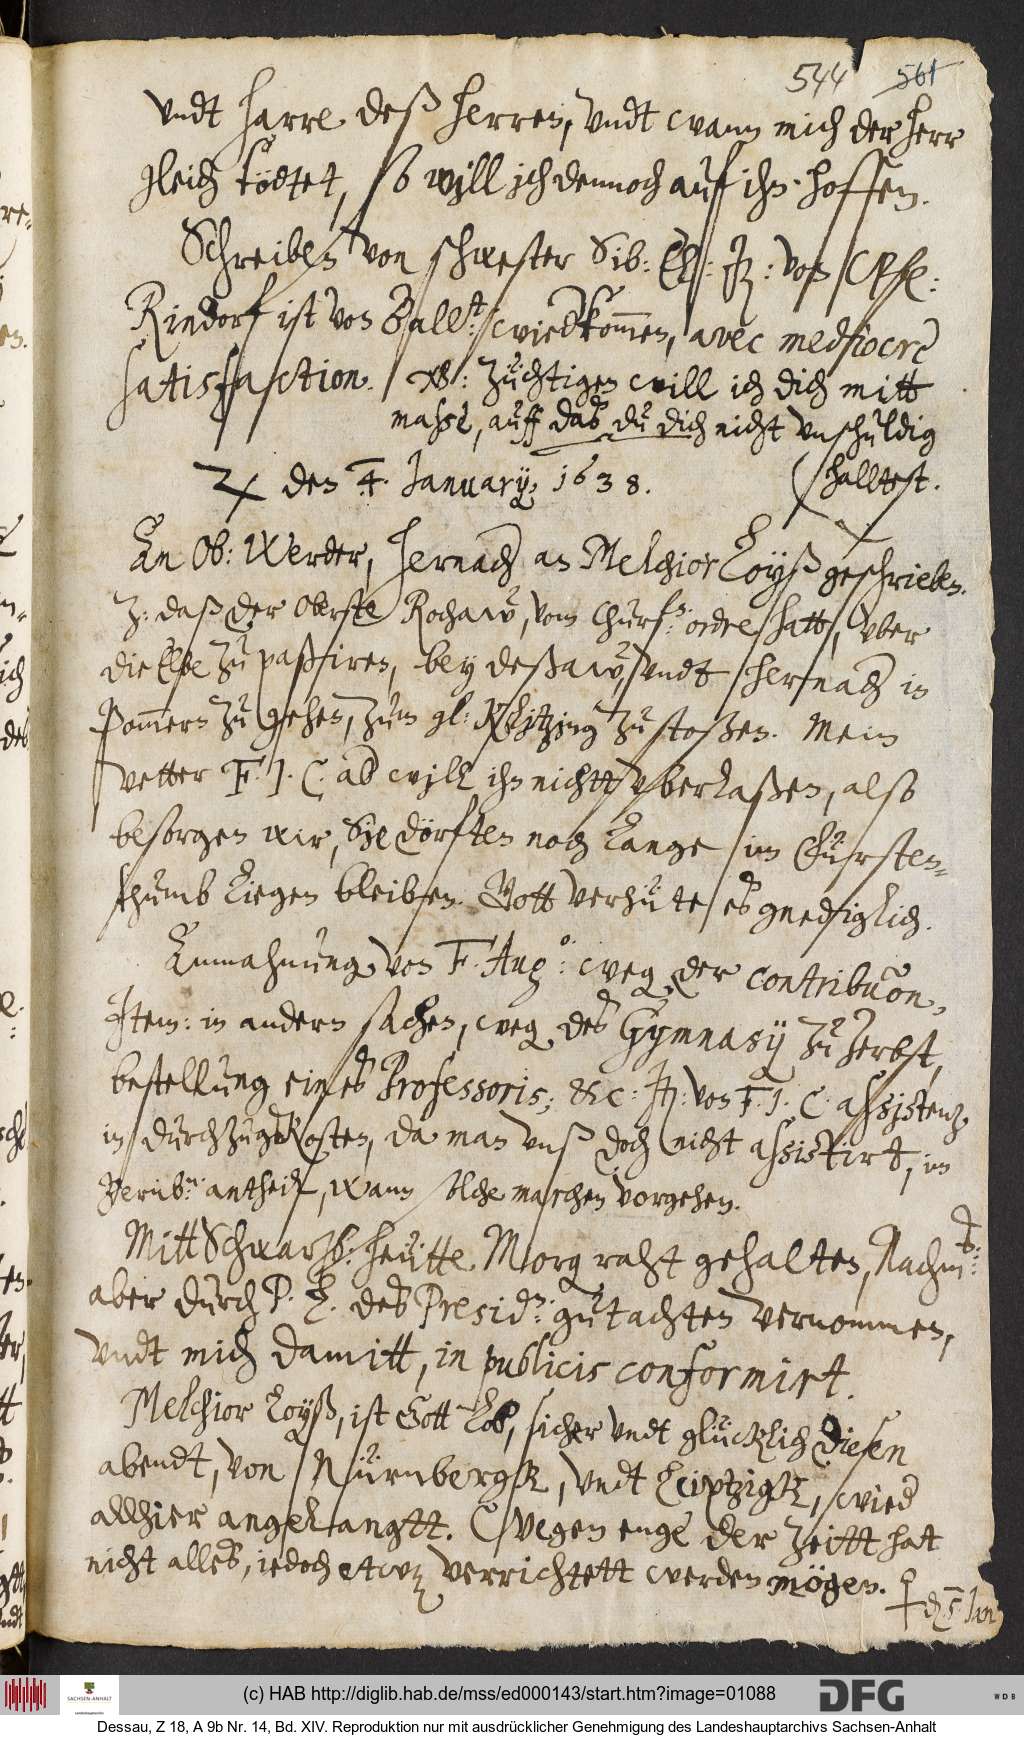 544 561
vndt harre deß herren, vndt wann mich der herr
gleich tödtet, so will ich dennoch auf ihn hoffen.
Schreiben von schwester Sib: El: It: von
Rindorf ist von Ball:t wiedkommen, avec mediocre
satisfaction. NB: Züchtigen will ich dich mitt
maße, auff daß du dich nicht vnschuldig
haltest.
♃ den 4. January, 1638.
An Ob: Werder, hernach an Melchior Loyß geschrieben.
Z: daß der Oberste Rochaw, vom Churf:n ordre hatt, vber
die Elbe zu paßiren, bey deßaw, vndt hernach in
Pommern zu gehen, zum gl: Klitzing zu stoßen. Mein
vetter F. J. C. ab will ihn nicht vberlaßen, also
besorgen wir, Sie dörften noch lange im Fürsten-
thumb liegen bleiben. Gott verhüte es gnediglich.
Anmahnung von F. Aug:o weg der contribuon,
Item: in andern sachen, weg des Gymnasij zu Zerbst,
bestellung eines Professoris, &c: It: von F. J. C. assistenz,
in durchzugskosten, da man vnß doch nicht assistirt, im
Bernb:n antheil, wann solche marchen vorgehen.
Mitt Schwarzb: heutte Morg raht gehalten, Nachm:s
aber durch P. L. des Presid:n gutachten vernommen,
vndt mich damitt, in publicis conformirt.
Melchior Loyß, ist Gott lob, sicher vndt glücklich diesen
abendt, von Nürnbergk, vndt Leiptzigk, wied
allhier angelangtt. Wegen enge der Zeitt hat
nicht alles, iedoch etwz verrichtett werden mögen.
♀ d 5 Jan
(c) HAB http://diglib.hab.de/mss/ed000143/start.htm?image=01088
SACHSEN-ANHALT
DFG
WDB
Dessau, Z 18, A 9b Nr. 14, Bd. XIV. Reproduktion nur mit ausdrücklicher Genehmigung des Landeshauptarchivs Sachsen-Anhalt